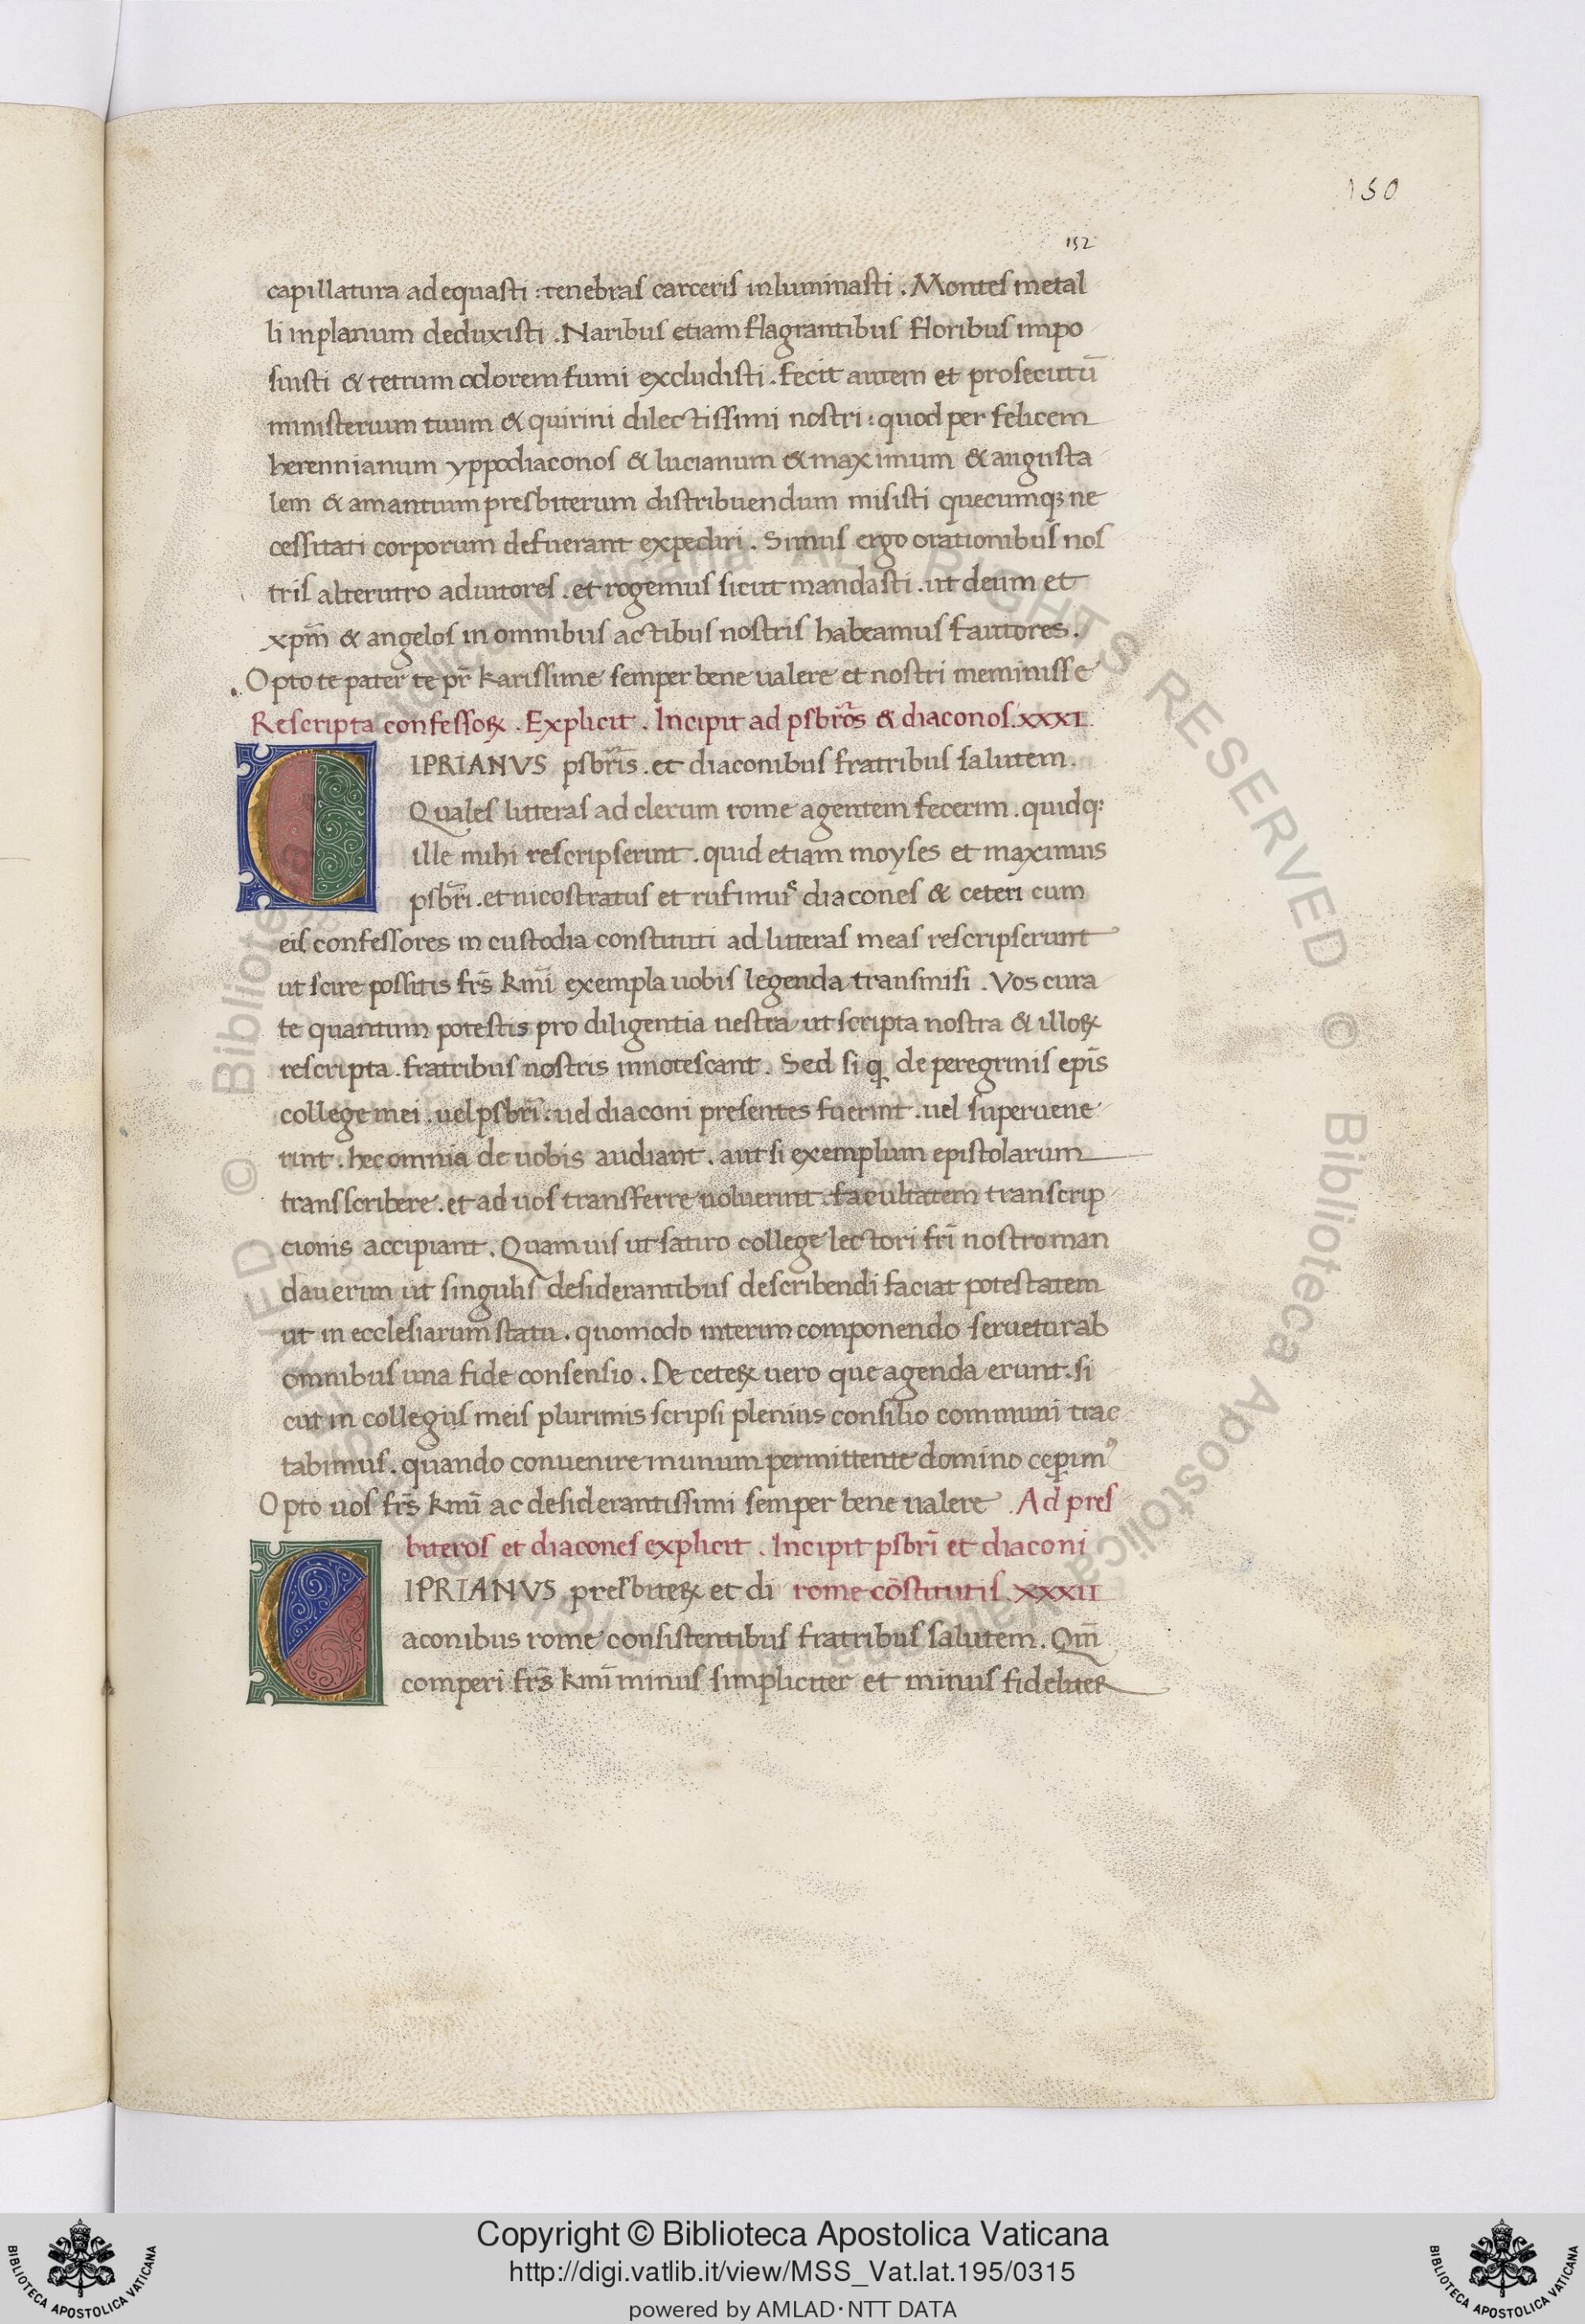 150
152
capillatura adequasti : tenebras carceris inluminasti . Montes metal
li inplanum deduxisti . Naribus etiam flagrantibus floribus impo
suisti & tetrum odorem fumi excludisti . fecit autem et prosecutū
ministerium tuum & quirini dilectissimi nostri : quod per felicem
herennianum yppodiaconos & lucianum & maximum & augusta
lem & amantium presbiterum distribuendum misisti quecumqꝫ ne
cessitati corporum defuerant expediri . Simus ergo orationibus nos
tris alterutro adiutores . et rogemus sicut mandasti . ut deum et
xpm̄ & angelos in omnibus actibus nostris habeamus fautores .
Opto te pater te pr̄ karissime semper bene ualere et nostri meminisse
Rescripta confessoꝝ . Explicit . Incipit ad psbr̄os & diaconos . xxxi
CIPRIANVS psbr̄is . et diaconibus fratribus salutem .
Quales litteras ad clerum rome agentem fecerim . quidqꝫ
ille mihi rescripserint . quid etiam moyses et maximus
psbr̄i . et nicostratus et rufinus diacones & ceteri cum
eis confessores in custodia constituti ad litteras meas rescripserunt
ut scire possitis frs̄ kmī exempla uobis legenda transmisi . Vos cura
te quantum potestis pro diligentia uestra ut scripta nostra & illoꝝ
rescripta . fratribus nostris innotescant . Sed si q̄ de peregrinis epīs
college mei . uel psbr̄i . uel diaconi presentes fuerint . uel superuene
rint . hec omnia de uobis audiant . aut si exemplum epistolarum
transscribere . et ad uos transferre uoluerint . facultatem transcrip
cionis accipiant . Quamuis ut satiro college lectori frī nostro man
dauerim ut singulis desiderantibus describendi faciat potestatem
ut in ecclesiarum statu . quomodo interim componendo seruetur ab
omnibus una fide consensio . De ceteꝝ uero que agenda erunt . si
cut in collegiis meis plurimis scripsi plenius consilio communi trac
tabimus . quando conuenire in unum permittente domino ceperimꝰ
Opto uos frs̄ kmī ac desiderantissimi semper bene ualere . Ad pres
biteros et diacones explicit . Incipit psbr̄i et diaconi
CIPRIANVS presbiteꝝ et di rome cōstitutis . xxxii
aconibus rome consistentibus fratribus salutem . Qm̄
comperi frs̄ kmī minus simpliciter et minus fideliter
© Biblioteca Apostolica Vaticana ALL RIGHTS RESERVED
Copyright © Biblioteca Apostolica Vaticana
http://digi.vatlib.it/view/MSS_Vat.lat.195/0315
powered by AMLAD·NTT DATA
BIBLIOTECA APOSTOLICA VATICANA
BIBLIOTECA APOSTOLICA VATICANA